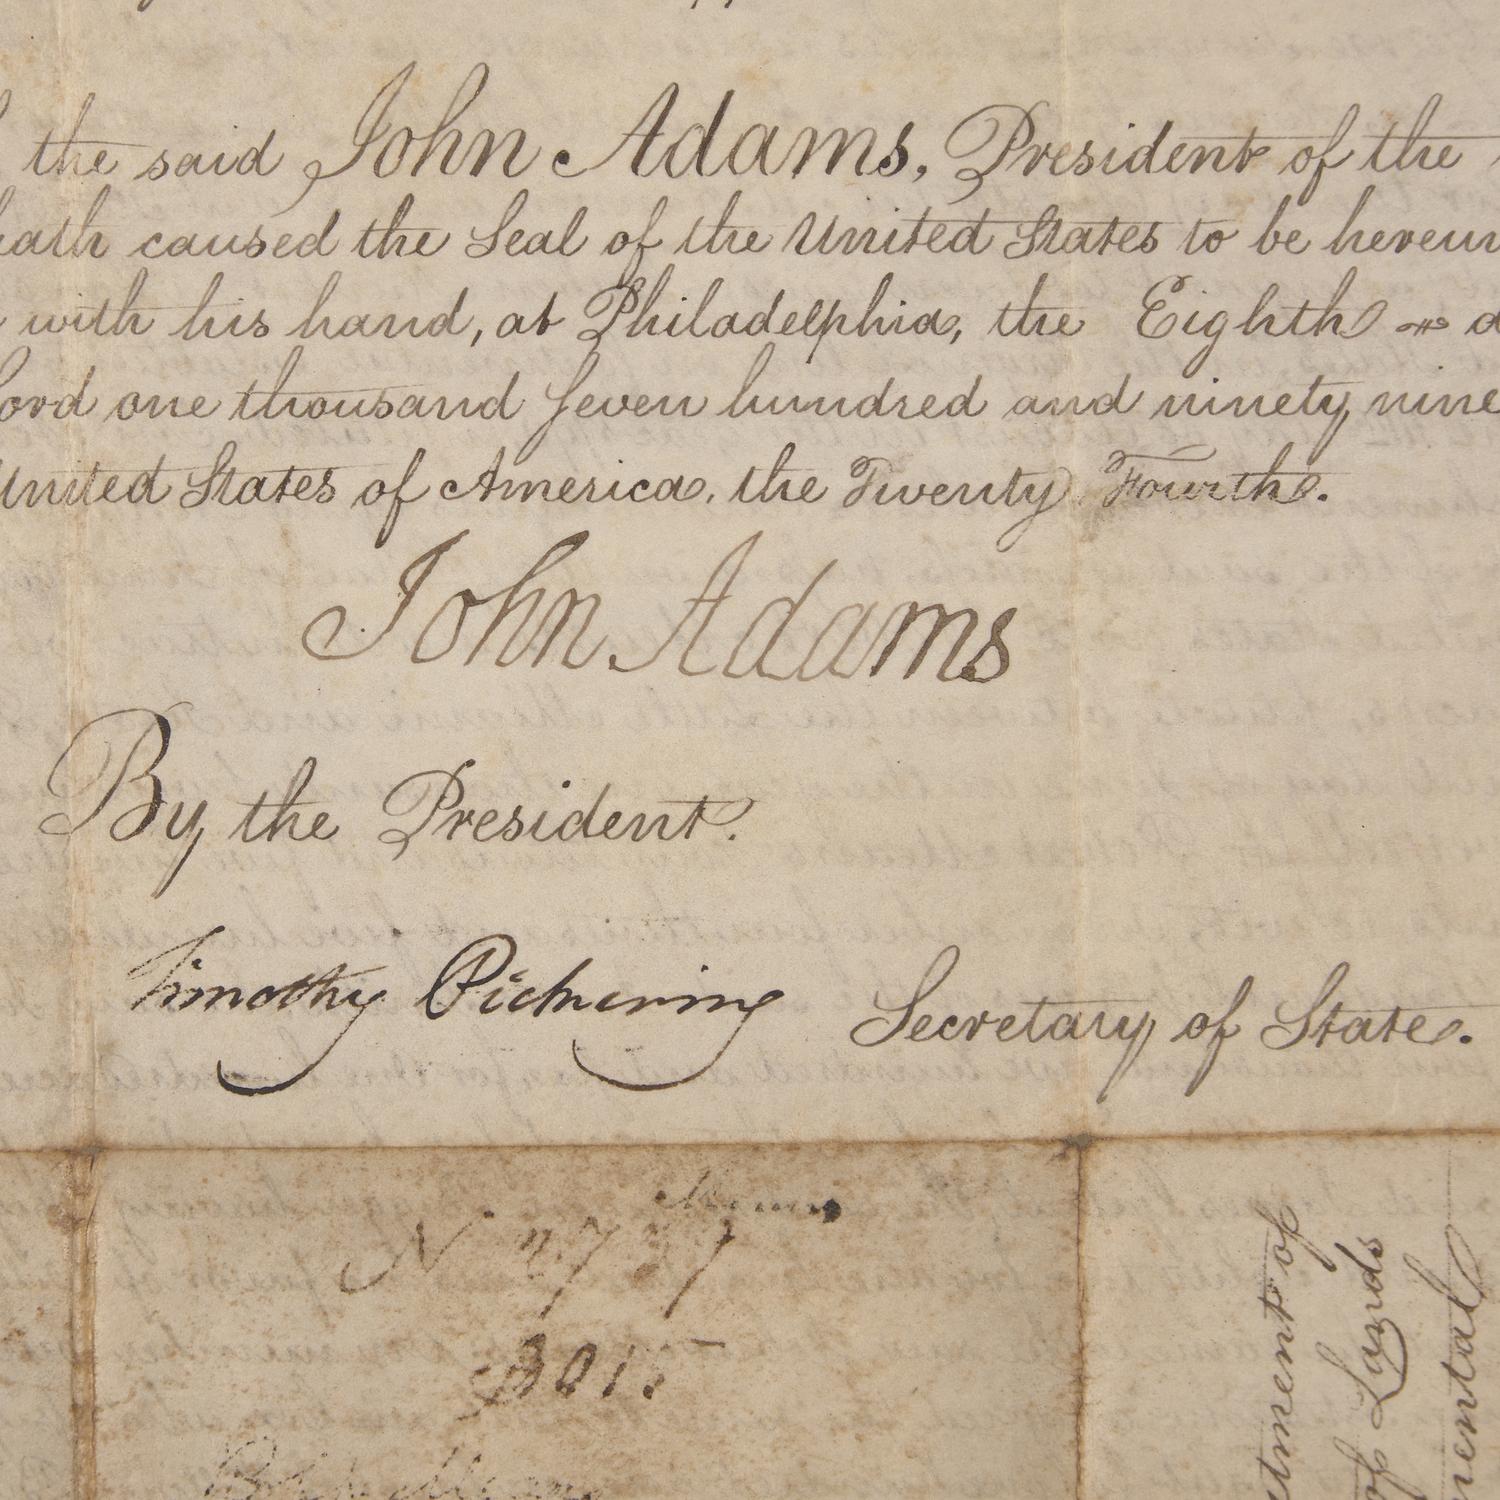 the said John Adams, President of the
caused the Seal of the United States to be hereun
with his hand, at Philadelphia, the Eighth
one thousand seven hundred and ninety nine
United States of America, the Twenty Fourth.
John Adams
By the President.
Timothy Pickering Secretary of State.
N 2737
3015
tment of
of Lands
mental